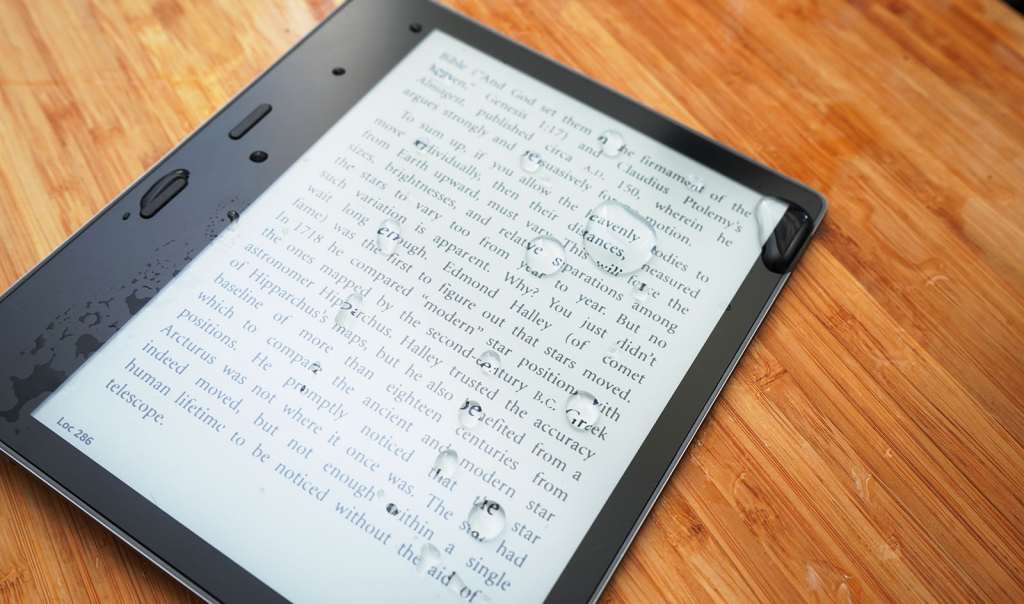 Bible ("And God set them firmament of the
heaven," Genesis 1:17) and Claudius Ptolemy's
Almagest, published circa A.D. 150, wherein he
argues strongly and persuasively motion.
To sum up, if you allow the heavenly bodies to
move individually, then their distances, measured
from Earth upward, must vary. This will force the
sizes, brightnesses, and relative separations among
the stars to vary too from year to year. But no
such variation is apparent. Why? You just didn't
wait long enough. Edmond Halley (of comet
fame) was the first to figure out that stars moved.
In 1718 he compared "modern" star positions with
the ones mapped by the second-century B.C. Greek
astronomer Hipparchus. Halley trusted the accuracy
of Hipparchus's maps, but he also benefited from a
baseline of more than eighteen centuries from
which to compare the ancient and modern star
positions. He promptly noticed that the star
Arcturus was not where it once was. The star had
indeed moved, but not enough within a single
human lifetime to be noticed without the aid of
telescope.
Loc 286